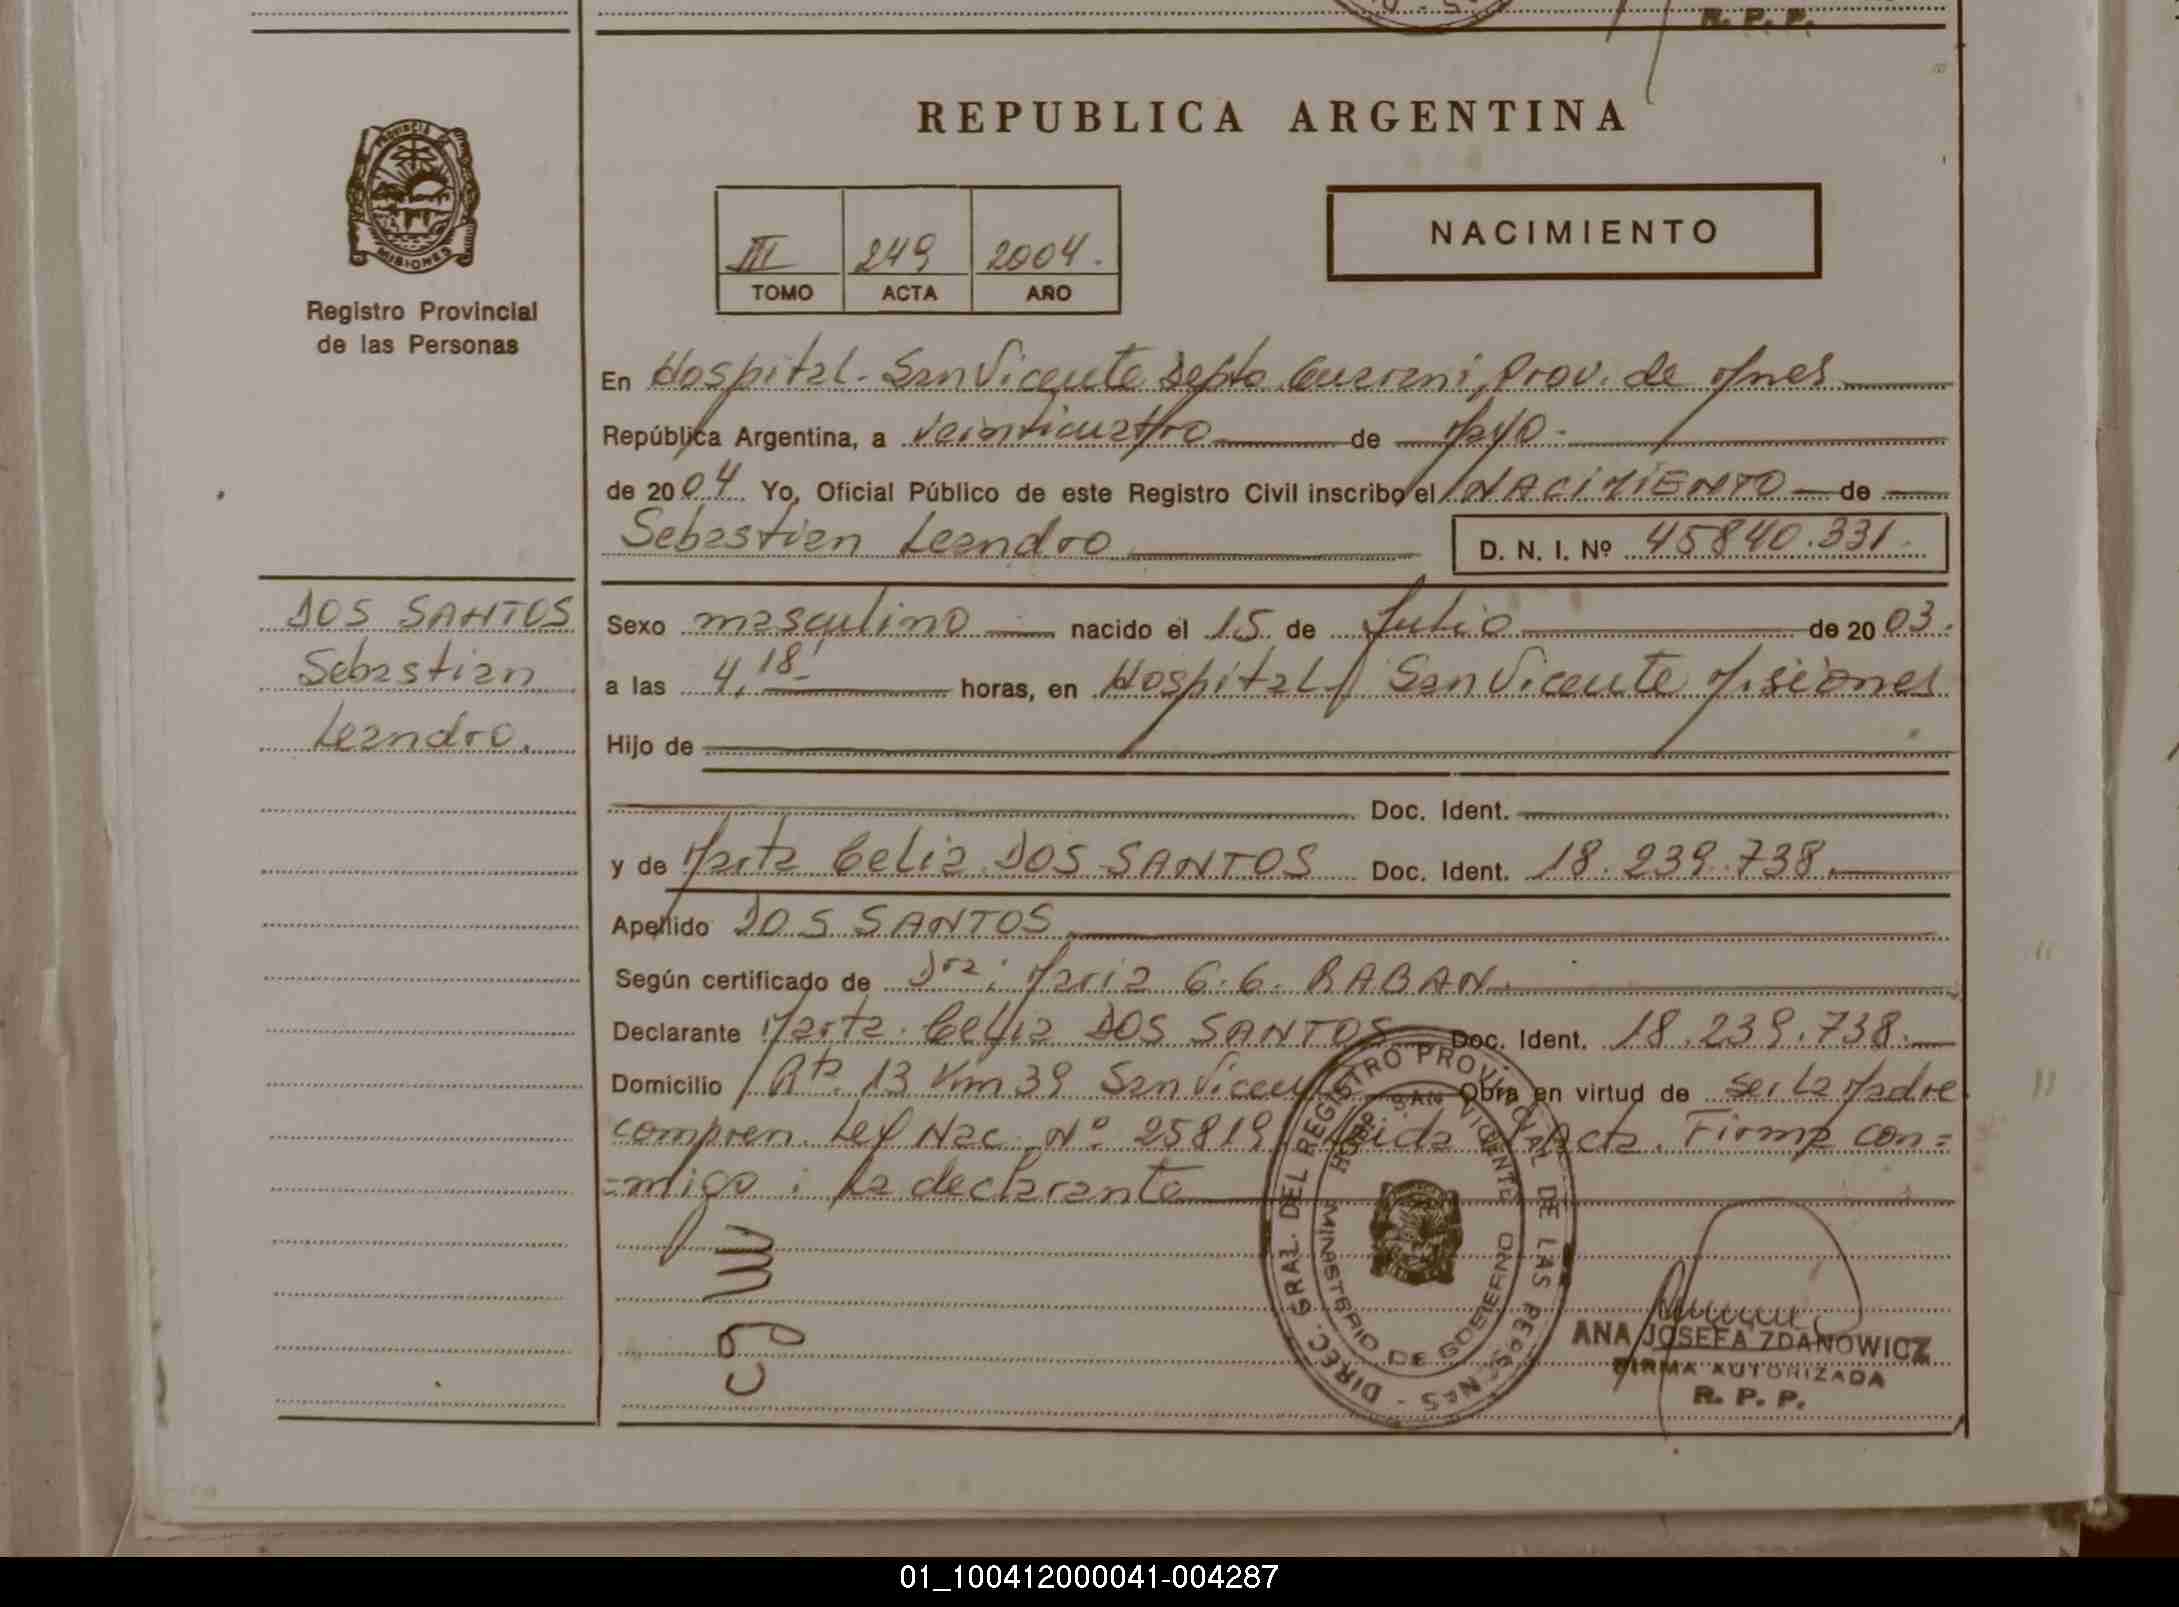 R. P. P.
PROVINCIA
MISIONES
Registro Provincial
de las Personas
REPUBLICA ARGENTINA
III 249 2004.
TOMO ACTA AÑO
NACIMIENTO
En Hospital San Vicente Depto Guarani, Prov. de Mnes
República Argentina, a veinticuatro de Mayo
de 2004 Yo, Oficial Público de este Registro Civil inscribo el NACIMIENTO de
Sebastian Leandro D. N. I. Nº 45840.331.
DOS SANTOS
Sebastian
Leandro.
Sexo masculino nacido el 15 de Julio de 2003.
a las 4,18' horas, en Hospital San Vicente Misiones
Hijo de
Doc. Ident.
y de Marta Celia DOS SANTOS Doc. Ident. 18.239.738.
Apellido DOS SANTOS
Según certificado de Dra: Maria G.G. RABAN
Declarante Marta Celia DOS SANTOS Doc. Ident. 18.239.738.
Domicilio Rta. 13 Km 39 San Vicente Obra en virtud de ser la Madre
compren. Ley Nac. Nº 25819. Leida el Acta. Firma con=
=migo: La declarante
DIREC. GRAL. DEL REGISTRO PROVINCIAL DE LAS PERSONAS
HOSP. SAN VICENTE
MINISTERIO DE GOBIERNO
ANA JOSEFA ZDANOWICZ
FIRMA AUTORIZADA
R. P. P.
01_100412000041-004287